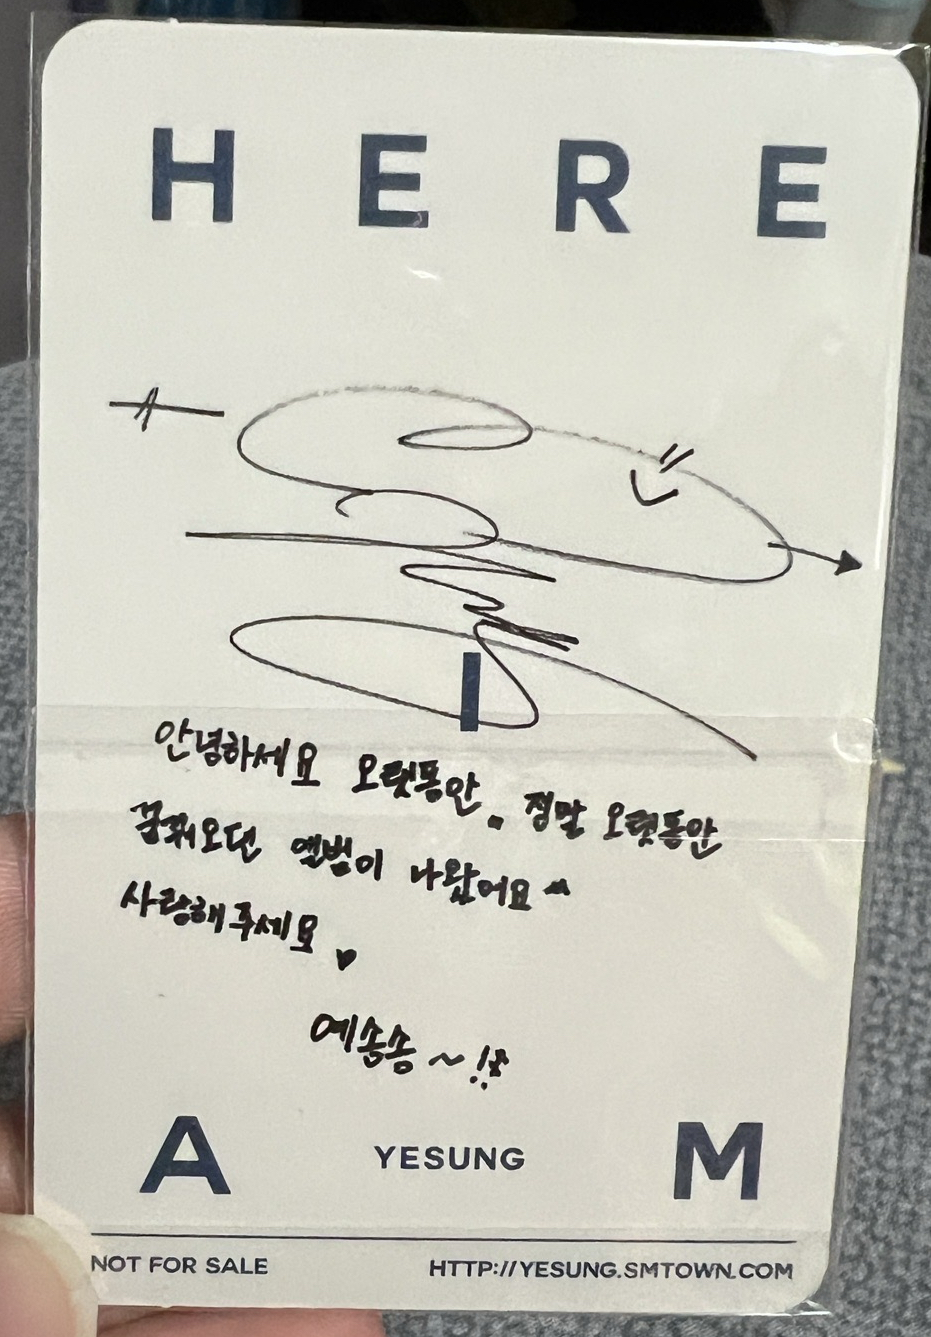 H E R E
I
안녕하세요 오랫동안. 정말 오랫동안
꿈꿔오던 앨범이 나왔어요^^
사랑해주세요. ♥
예송송~!!
A YESUNG M
NOT FOR SALE HTTP://YESUNG.SMTOWN.COM